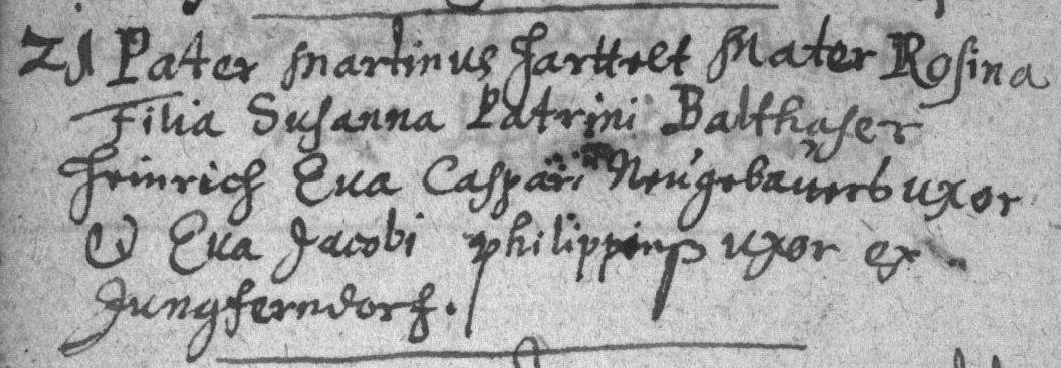 21 Pater Martinus Harttelt Mater Rosina
Filia Susanna Patrini Balthaser
Heinrich Eva Caspari Neugebauers uxor
& Eva Jacobi philippins uxor ex
Jungferndorf.